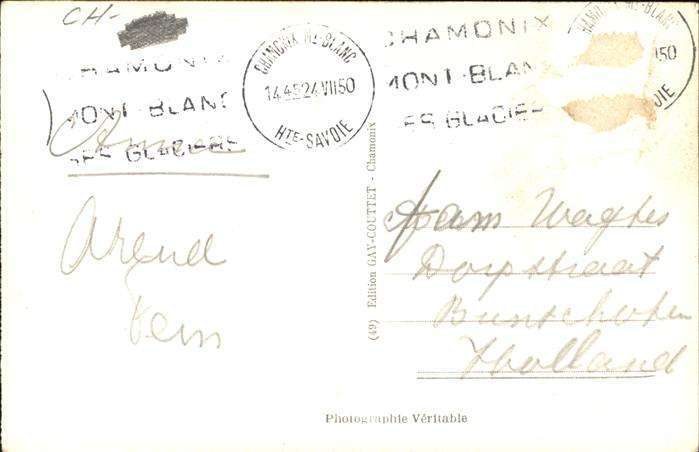 CH-
CHAMONIX
MONT-BLANC
SES GLACIERS
CHAMONIX MT-BLANC
14 45 24 VII 50
HTE-SAVOIE
CHAMONIX
MONT-BLANC
SES GLACIERS
CHAMONIX MT-BLANC
50
SAVOIE
Arend
(49) Edition GAY-COUTTET - Chamonix
Fam Wagtes
Dorpstraat
Bunschoten
Holland
Photographie Véritable